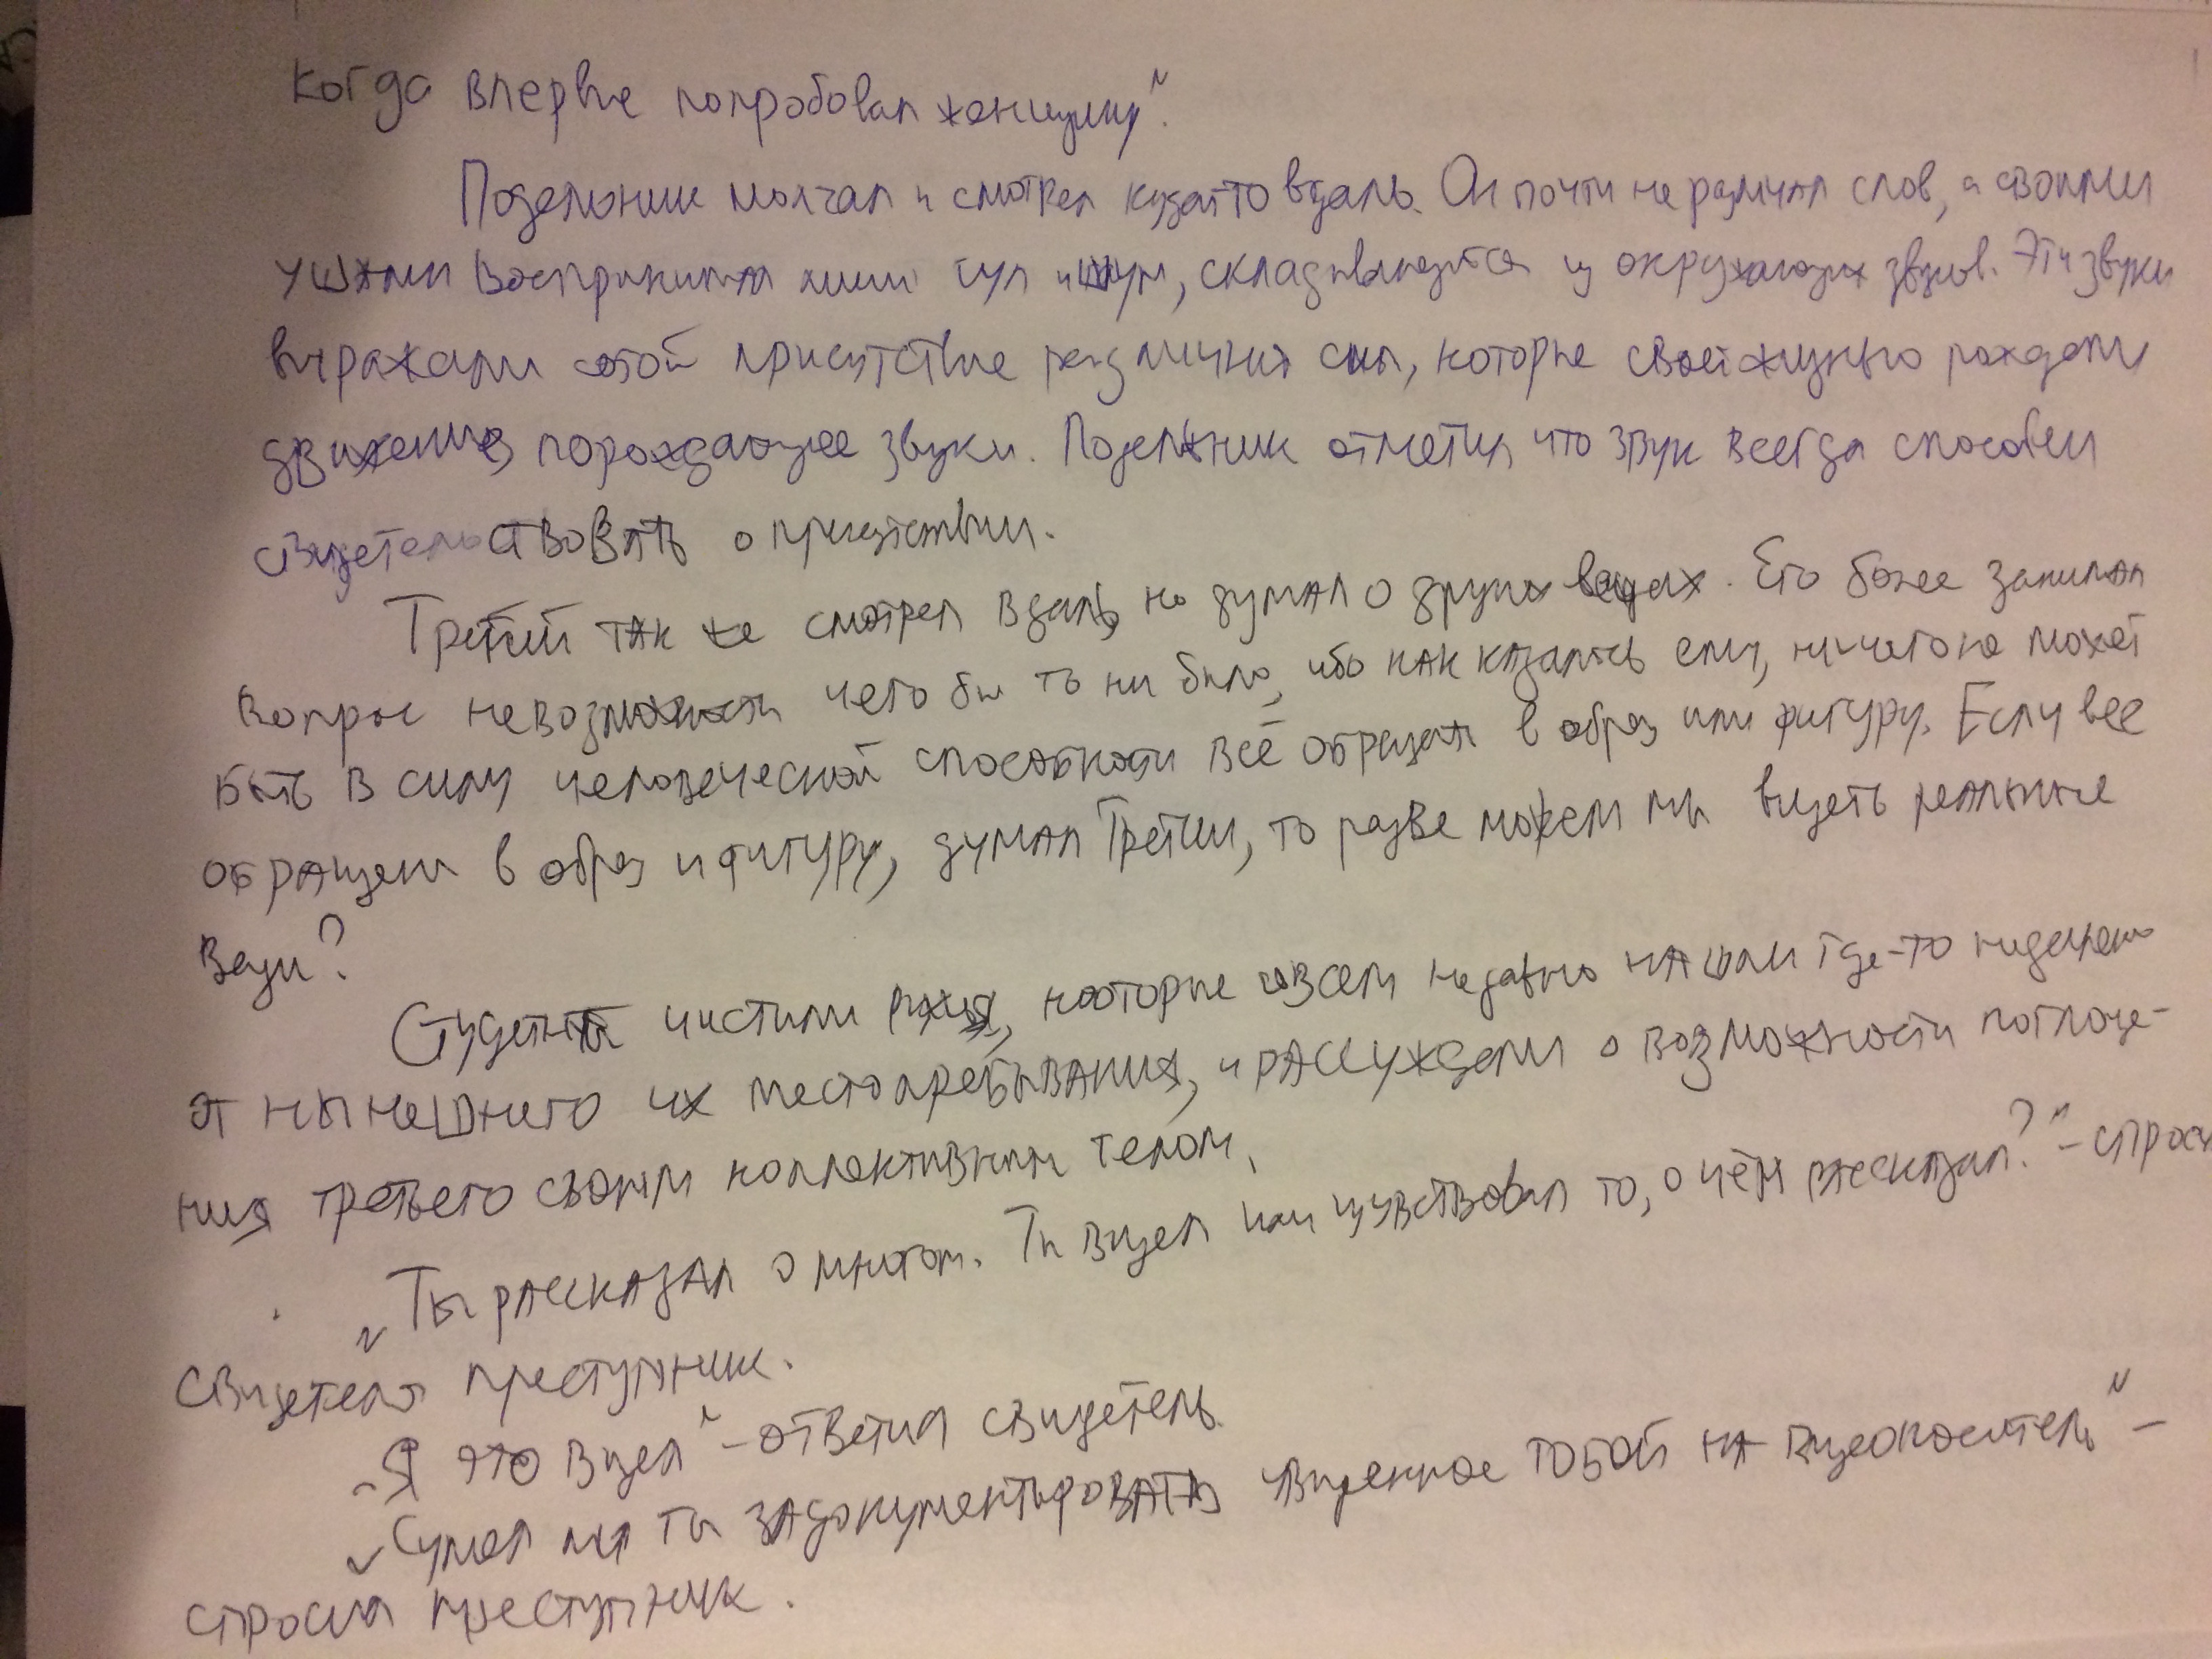 когда впервые попробовал женщину“.
Подельник молчал и смотрел куда-то вдаль. Он почти не различал слов, а своими
ушами воспринимал лишь гул и шум, складывающийся из окружающих звуков. Эти звуки
выражали собой присутствие различных сил, которые своей жизнью рождали
движение, порождающее звуки. Подельник отметил, что звук всегда способен
свидетельствовать о присутствии.
Третий так же смотрел вдаль, но думал о других вещах. Его более занимал
вопрос невозможности чего бы то ни было, ибо как казалось ему, ничего не может
быть в силу человеческой способности всё обращать в образ или фигуру. Если все
обращено в образ и фигуру, думал Третий, то разве можем мы видеть реальные
вещи?
Студенты чистили ружья, которые совсем недавно нашли где-то недалеко
от нынешнего их местопребывания, и рассуждали о возможности поглоще-
ния третьего своим коллективным телом.
„Ты рассказал о многом. Ты видел или чувствовал то, о чём рассказал?“ – спросил
свидетеля преступник.
„Я это видел“ – ответил свидетель.
„Сумел ли ты задокументировать увиденное тобой на видеоноситель“ –
спросил преступник.